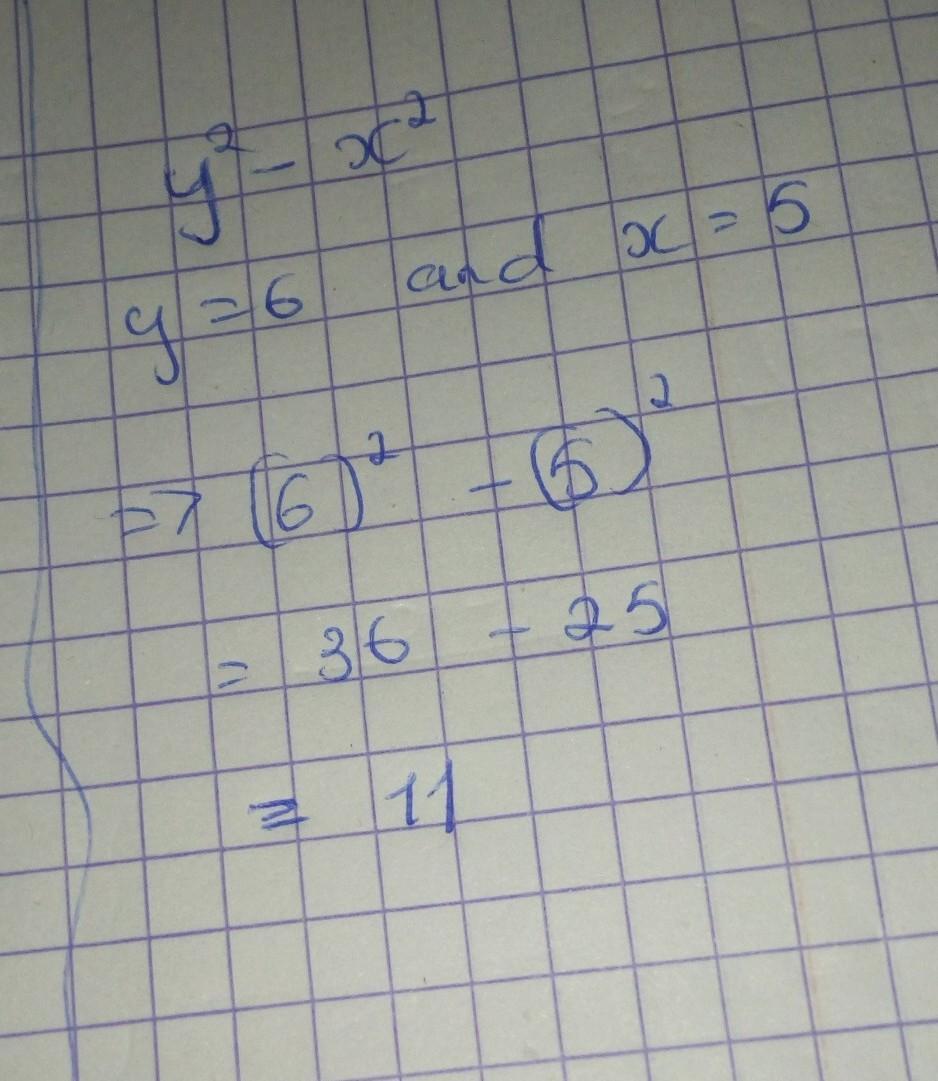 y² - x²
y = 6 and x = 5
=> (6)² - (5)²
= 36 - 25
= 11